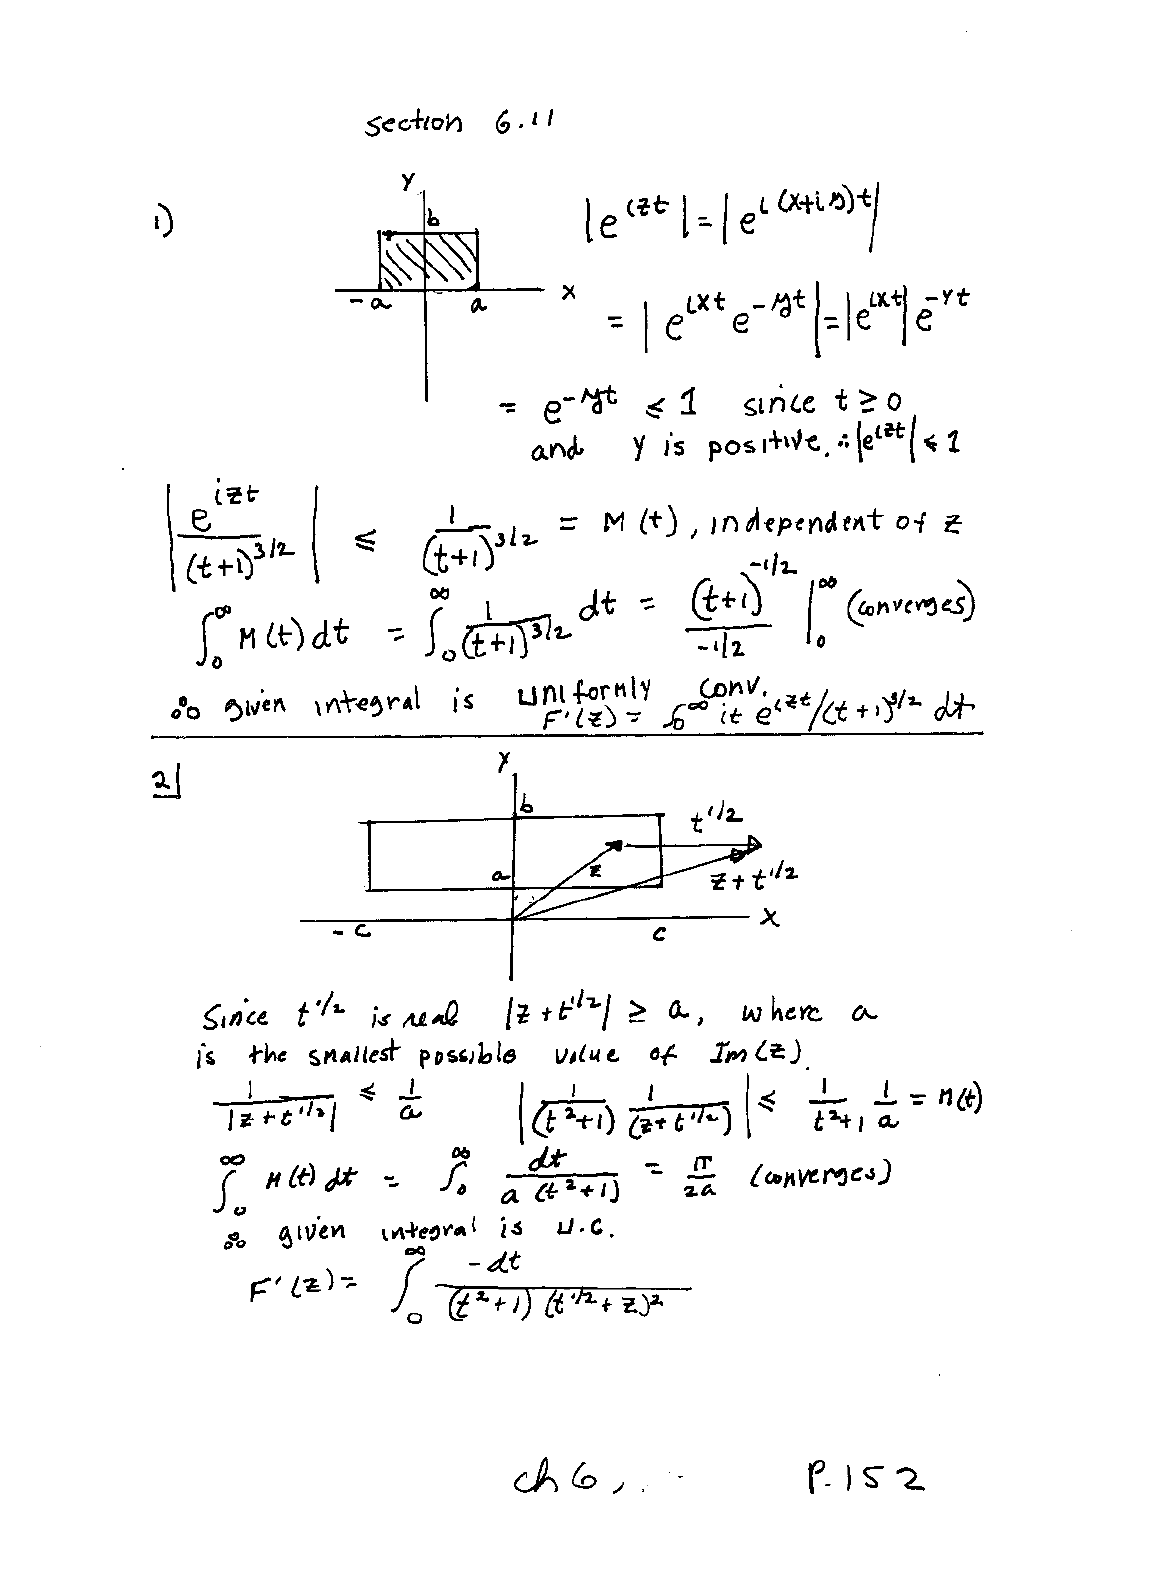 section 6.11
1)
y
b
-a
a
x
|e^{izt}| = |e^{i(x+iy)t}|
= |e^{ixt} e^{-yt}| = |e^{ixt}| e^{-yt}
= e^{-yt} ≤ 1 since t ≥ 0
and y is positive. ∴ |e^{izt}| ≤ 1
|e^{izt}/(t+1)^{3/2}| ≤ 1/(t+1)^{3/2} = M(t), independent of z
∫_0^∞ M(t) dt = ∫_0^∞ 1/(t+1)^{3/2} dt = (t+1)^{-1/2}/(-1/2) |_0^∞ (converges)
∴ given integral is uniformly conv.
F'(z) = ∫_0^∞ it e^{izt}/(t+1)^{3/2} dt
2)
y
b
t^{1/2}
a
z
z + t^{1/2}
-c
c
x
Since t^{1/2} is real |z + t^{1/2}| ≥ a, where a
is the smallest possible value of Im(z).
1/|z + t^{1/2}| ≤ 1/a |1/(t^2+1) 1/(z + t^{1/2})| ≤ 1/(t^2+1) 1/a = M(t)
∫_0^∞ M(t) dt = ∫_0^∞ dt/(a(t^2+1)) = π/2a (converges)
∴ given integral is u.c.
F'(z) = ∫_0^∞ -dt/((t^2+1)(t^{1/2} + z)^2)
ch 6, P. 152